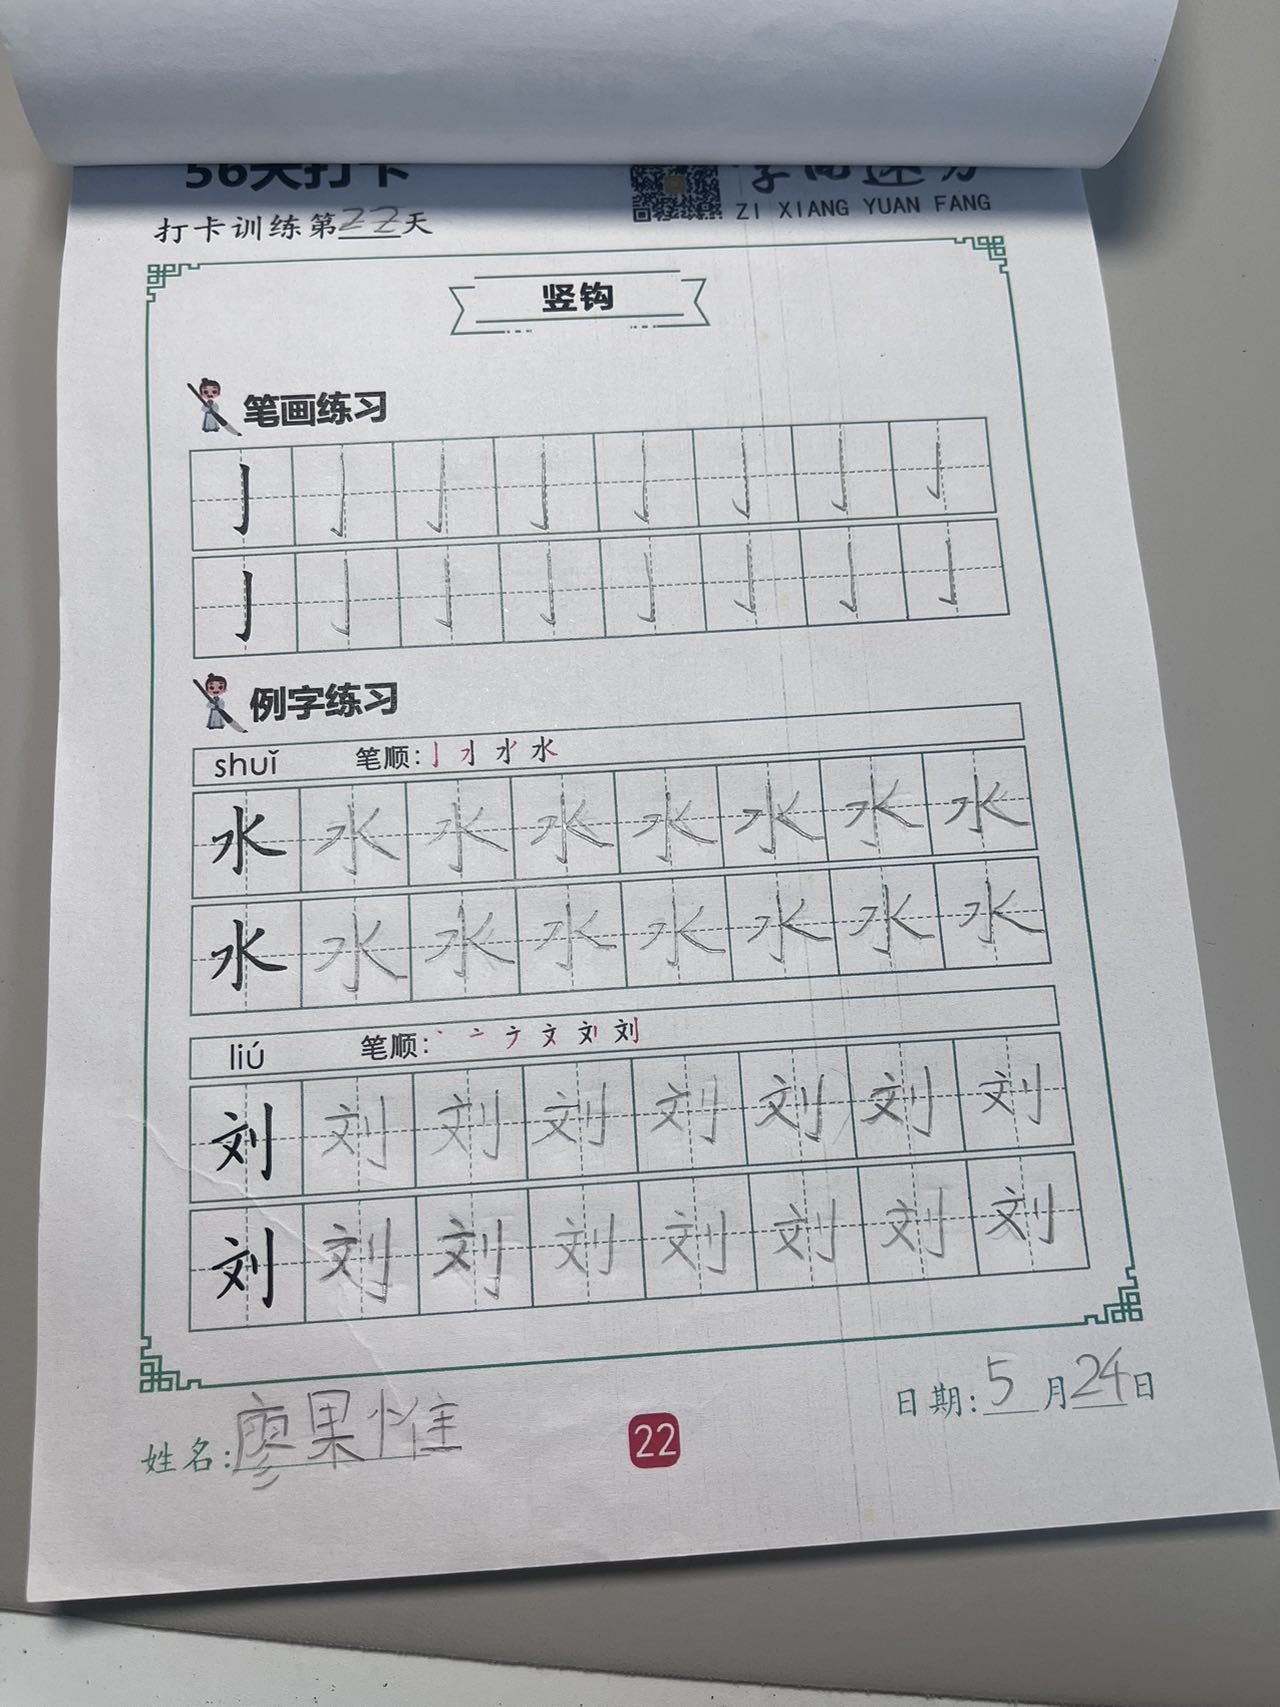 56天打卡
字向远方
ZI XIANG YUAN FANG
打卡训练第22天
竖钩
笔画练习
亅亅亅亅亅亅亅亅
亅亅亅亅亅亅亅亅
例字练习
shuǐ 笔顺:
水水水水水水水水
水水水水水水水水
liú 笔顺:
刘刘刘刘刘刘刘刘
刘刘刘刘刘刘刘刘
日期:5月24日
姓名:廖果惟
22